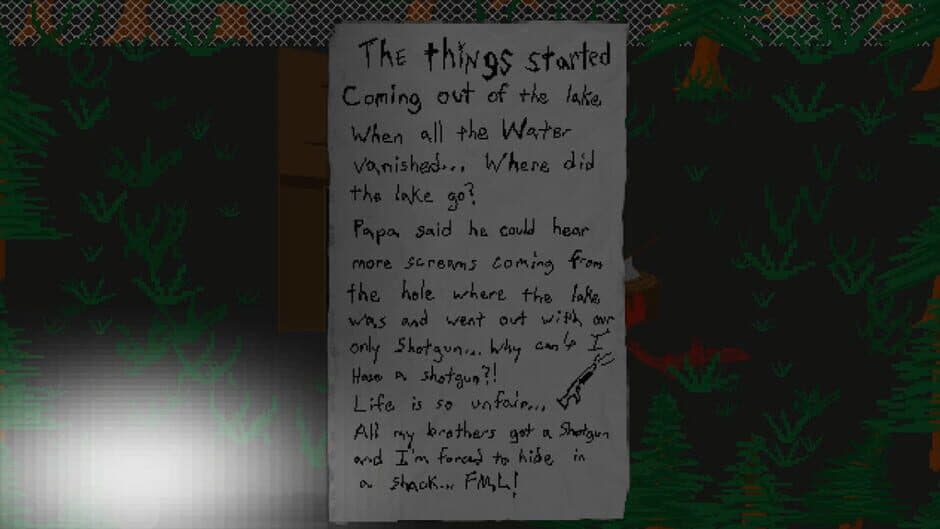 The things started
Coming out of the lake
When all the Water
vanished... Where did
the lake go?
Papa said he could hear
more screams coming from
the hole where the lake
was and went out with our
only Shotgun... Why can't I
Have a shotgun?!
Life is so unfair...
All my brothers got a Shotgun
and I'm forced to hide in
a shack... FML!